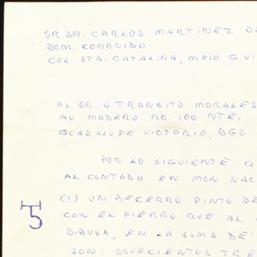 SR. DN. CARLOS MARTINEZ D
DOM. CONOCIDO
COL STA. CATALINA, MPIO GUI
AL SR. O TRANSITO MORALES
AV MADERO NO. 100 NTE.
GUADALUPE VICTORIA, DGO
POR LO SIGUIENTE Q
AL CONTADO EN MON. NAC
(1) UN BECERRO PINTO DE
CON EL FIERRO QUE AL
DIBUJA, EN LA SUMA DE
SON: NOVECIENTOS TRE
T5